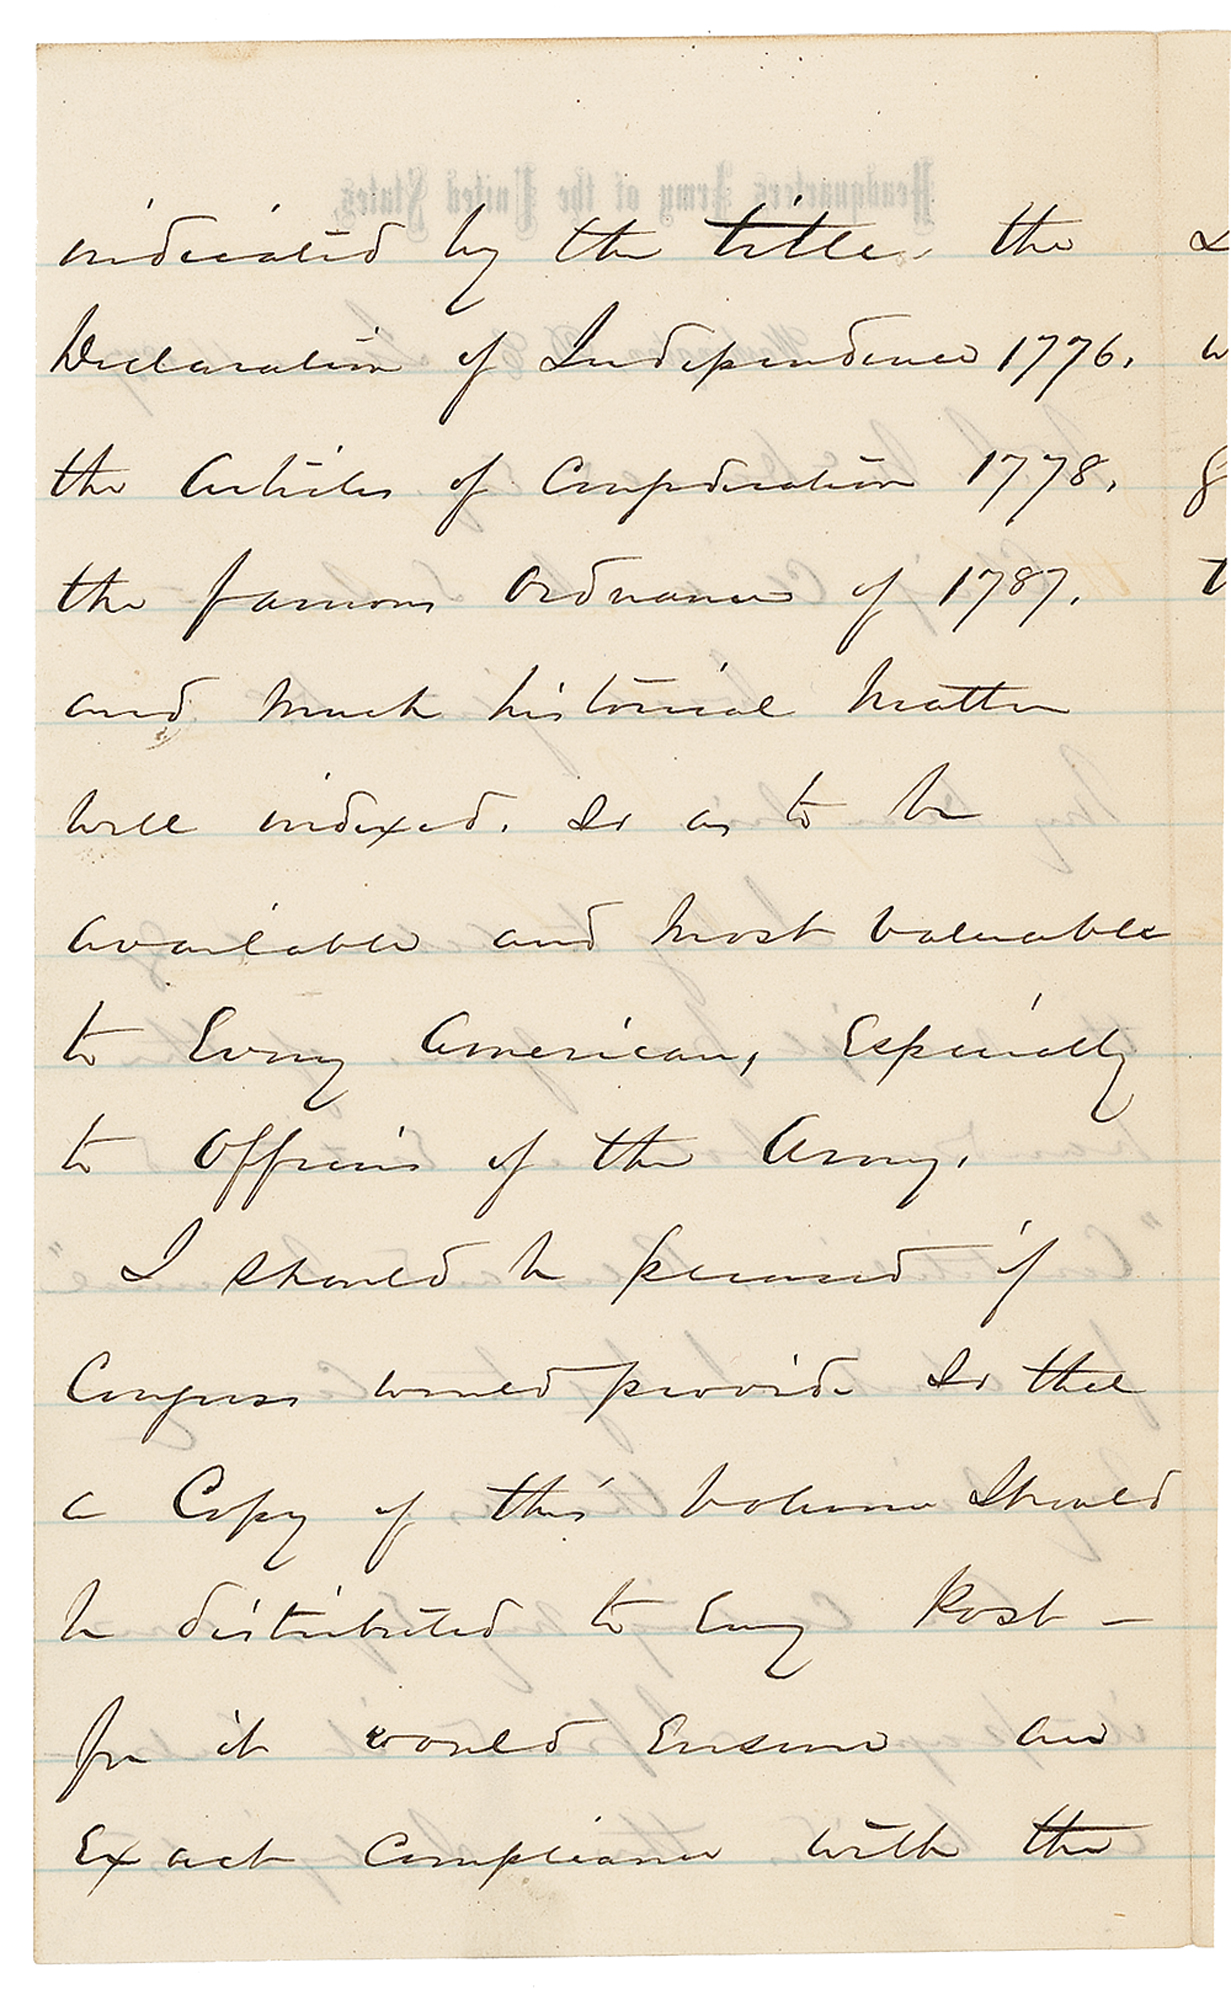 indicated by the title, the
Declaration of Independence 1776.
the Articles of Confederation 1778.
the famous Ordnance of 1787.
and much historical matter
well indexed. So as to be
available and most valuable
to Every American, Especially
to Officers of the Army.
I should be pleased if
Congress would provide So that
a Copy of this volume Should
be distributed to Every Post –
for it would Ensure an
Exact Compliance with the